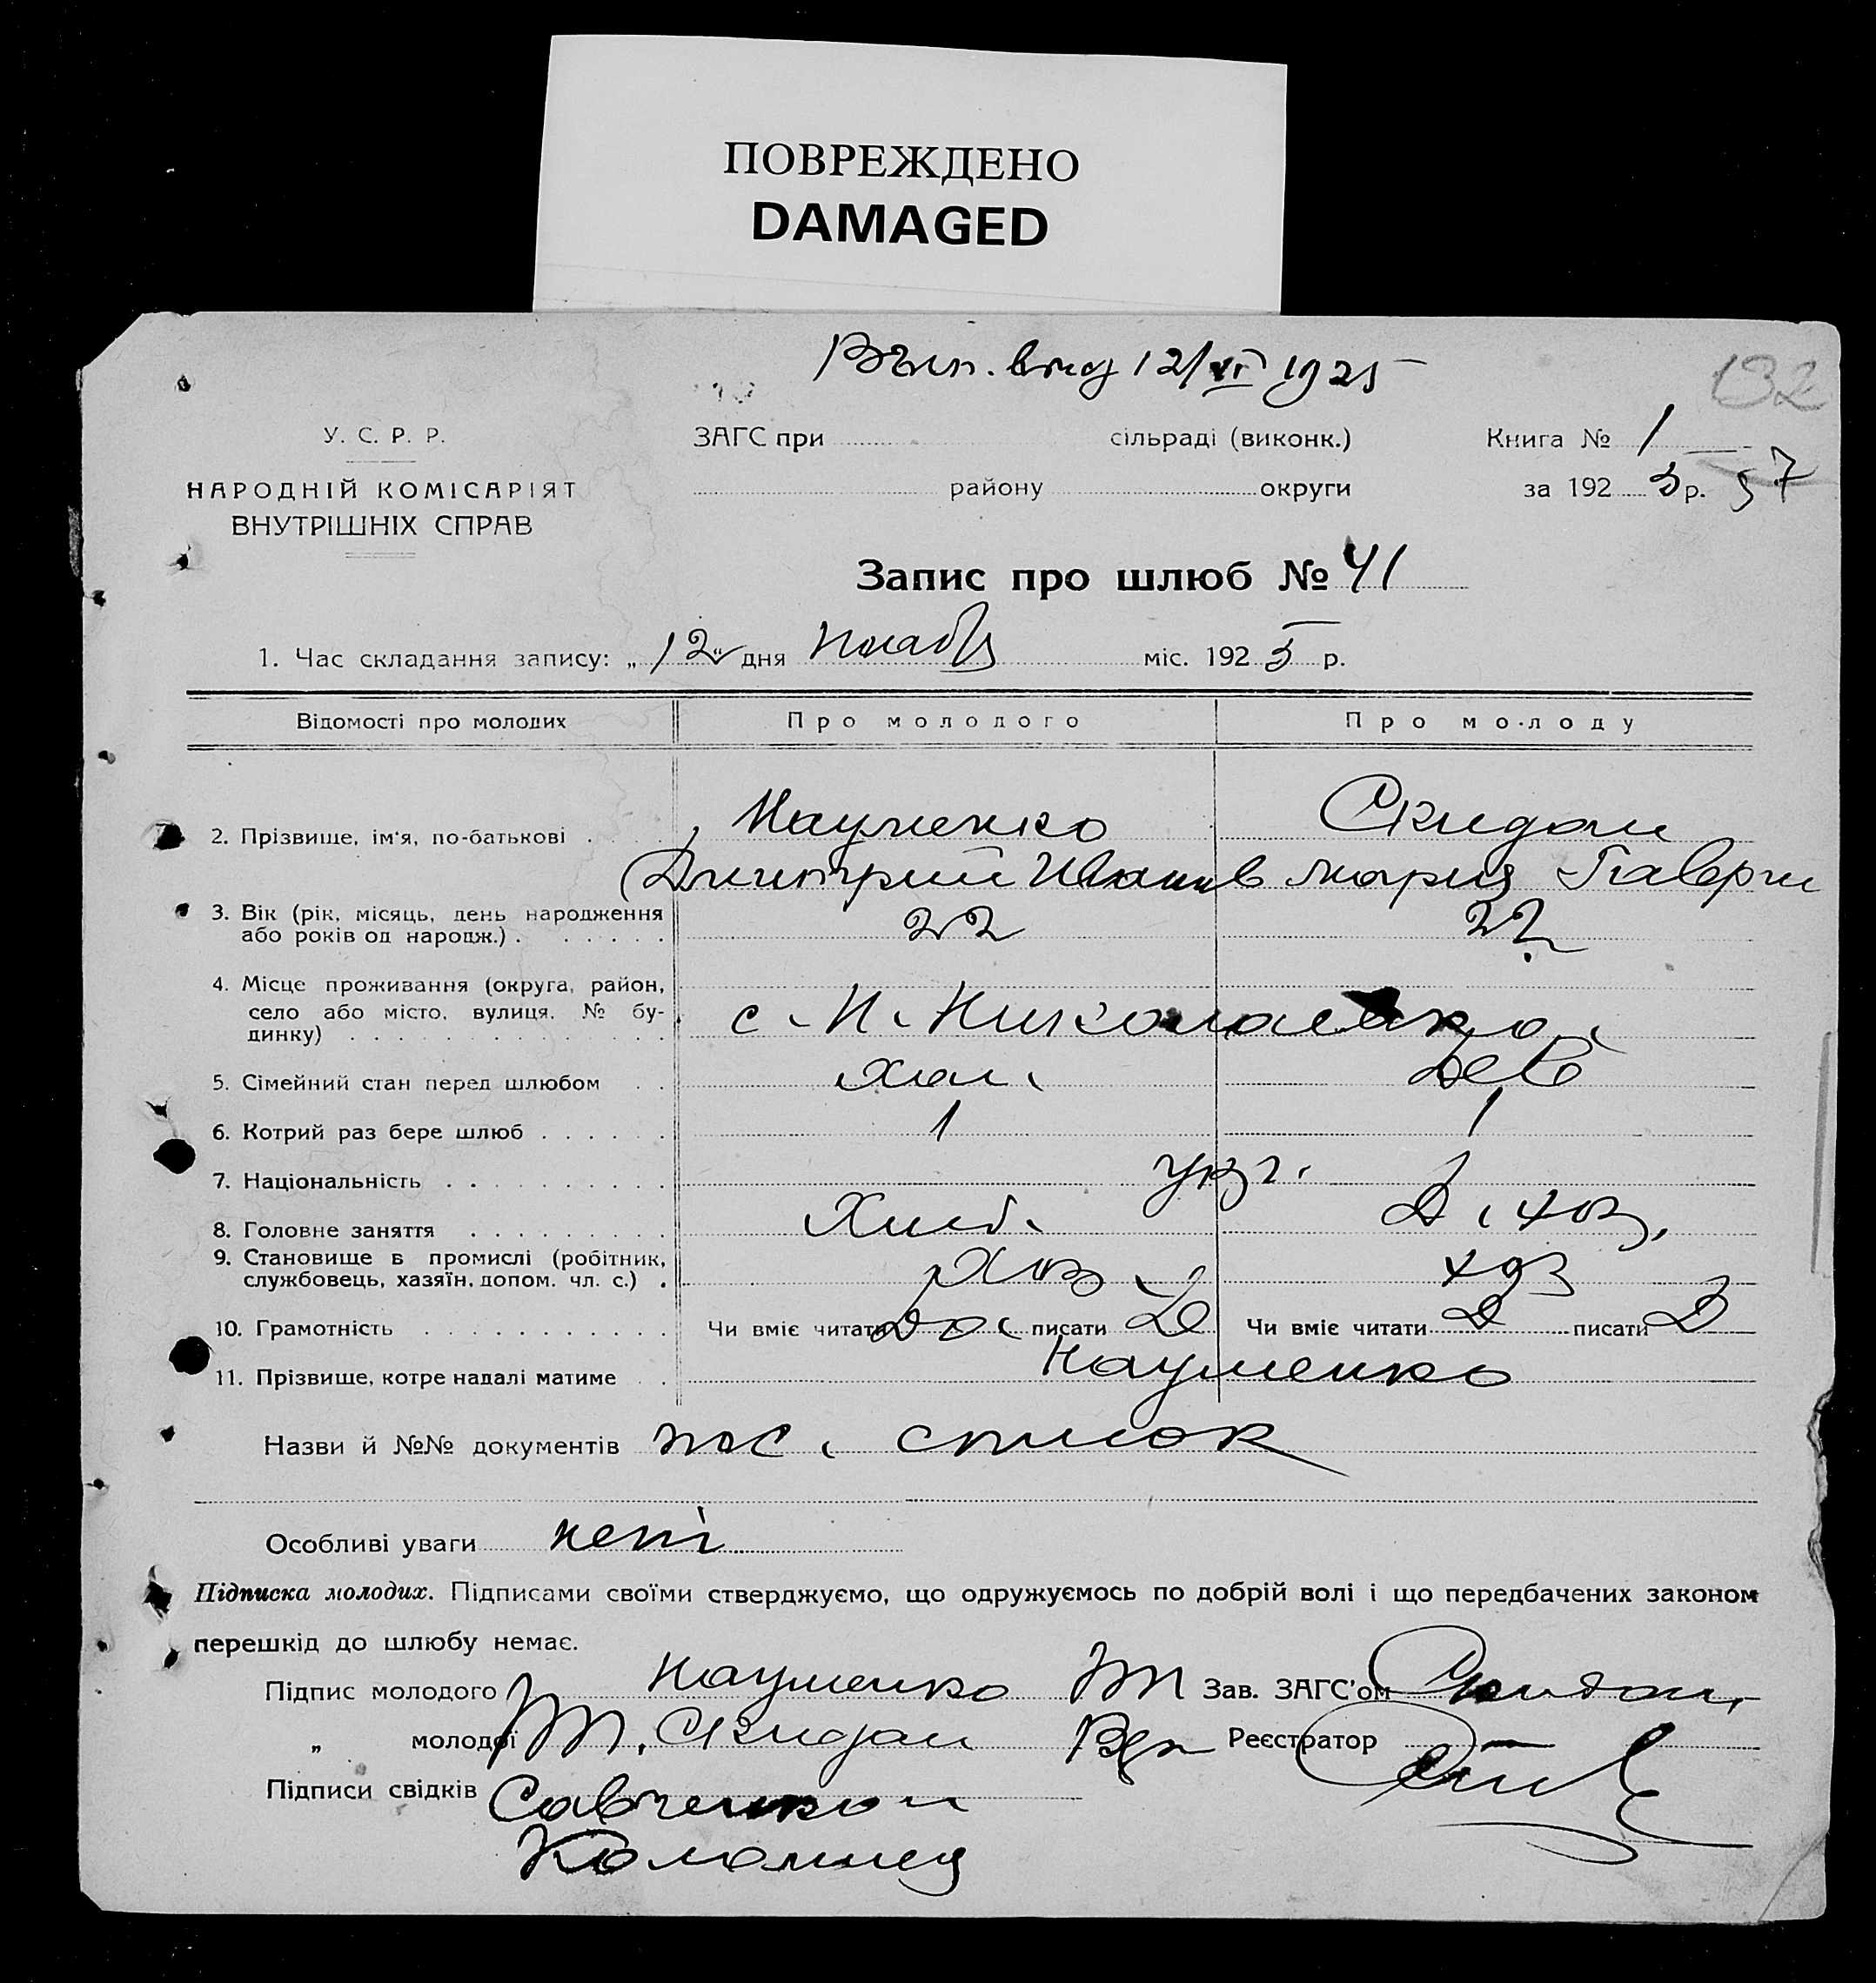 ПОВРЕЖДЕНО
DAMAGED
Вып. 12/VI 1925
132
У. С. Р. Р.
ЗАГС при сільраді (виконк.)
Книга № 1
НАРОДНІЙ КОМІСАРІЯТ
ВНУТРІШНІХ СПРАВ
району округи
за 192 5 р. 57
Запис про шлюб № 41
1. Час складання запису: „ 12 " дня міс. 192 5 р.
Відомості про молодих Про молодого Про молоду
2. Прізвище, ім'я, по-батькові Науменко Скидан
Дмитрий Иванив Мария Гаври
3. Вік (рік, місяць, день народження
або років од народж.) 22 22
4. Місце проживання (округа, район,
село або місто, вулиця, № бу-
динку) с. Н. Николаевка
5. Сімейний стан перед шлюбом Хол. Дев
6. Котрий раз бере шлюб 1 1
7. Національність укр.
8. Головне заняття Хліб. Д. хоз.
9. Становище в промислі (робітник,
службовець, хазяїн, допом. чл. с.) Хоз хоз
10. Грамотність Чи вміє читати писати Чи вміє читати Д писати Д
11. Прізвище, котре надалі матиме Науменко
Назви й №№ документів пос. список
Особливі уваги нет
Підписка молодих. Підписами своїми стверджуємо, що одружуємось по добрій волі і що передбачених законом
перешкід до шлюбу немає.
Підпис молодого Науменко Зав. ЗАГС'ом
„ молодої М. Скидан Реєстратор
Підписи свідків Савченко
Коломиец